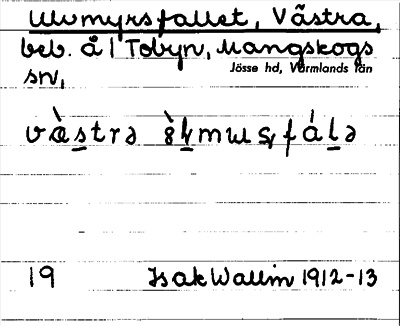 Ulvmyrsfallet, Västra,
beb. å 1 Tobyn, Mangskogs
sn,
Jösse hd, Värmlands län
19 Isak Wallin 1912-13